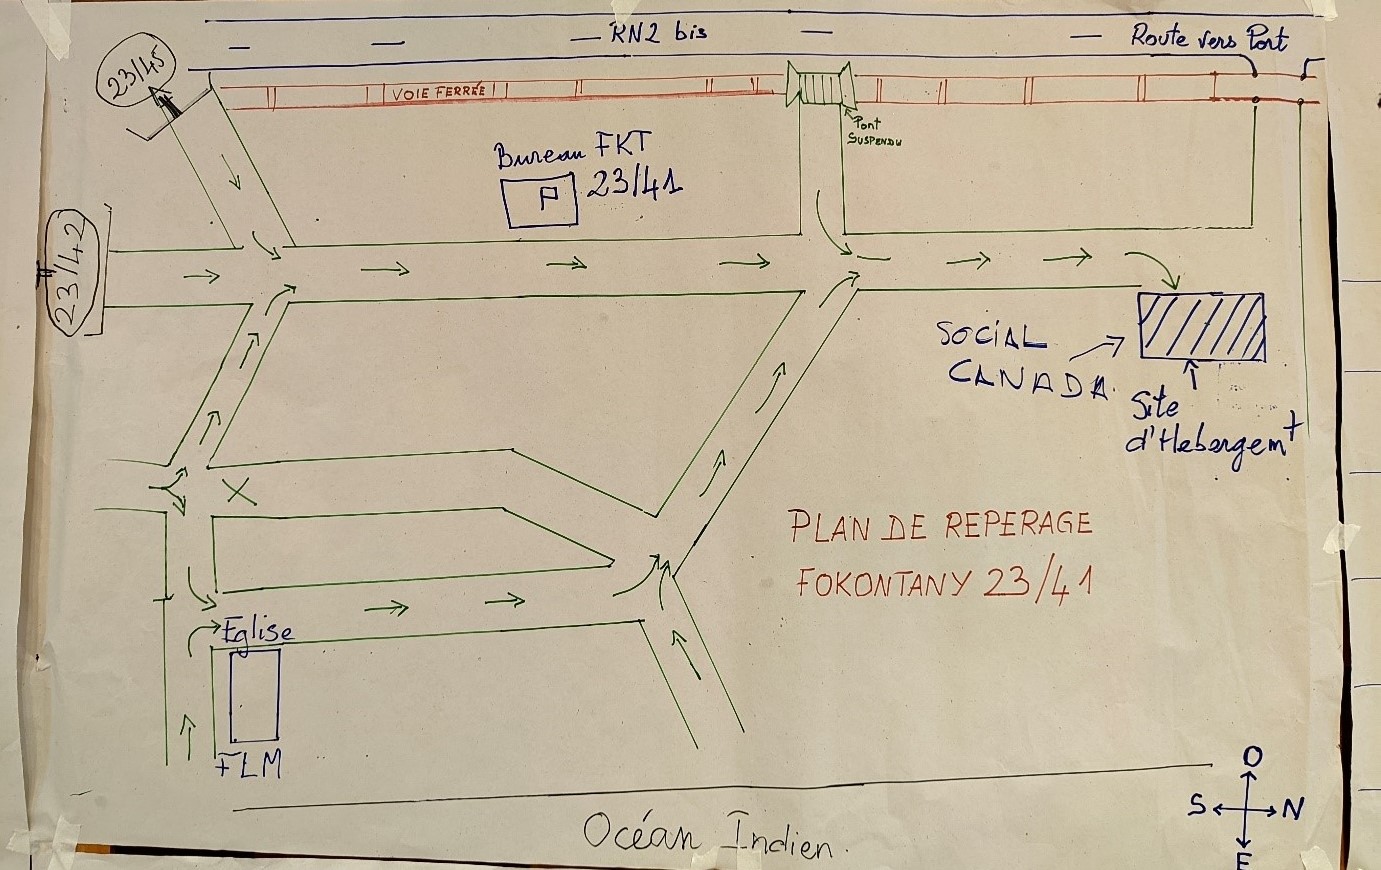 RN2 bis
Route vers Port
23/45
VOIE FERRÉE
Pont
SUSPENDU
Bureau FKT
23/41
P
23/42
SOCIAL
CANADA
Site
d'Hebergemt
PLAN DE REPERAGE
FOKONTANY 23/41
X
Eglise
FLM
Océan Indien.
O
S N
E